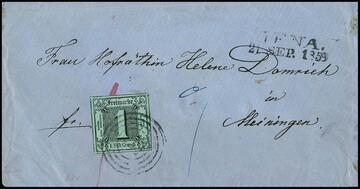 JENA.
21 SEP. 1859
Frau Hofräthin Helene Domrich
in
fr.
Meiningen.
Freimarke
1